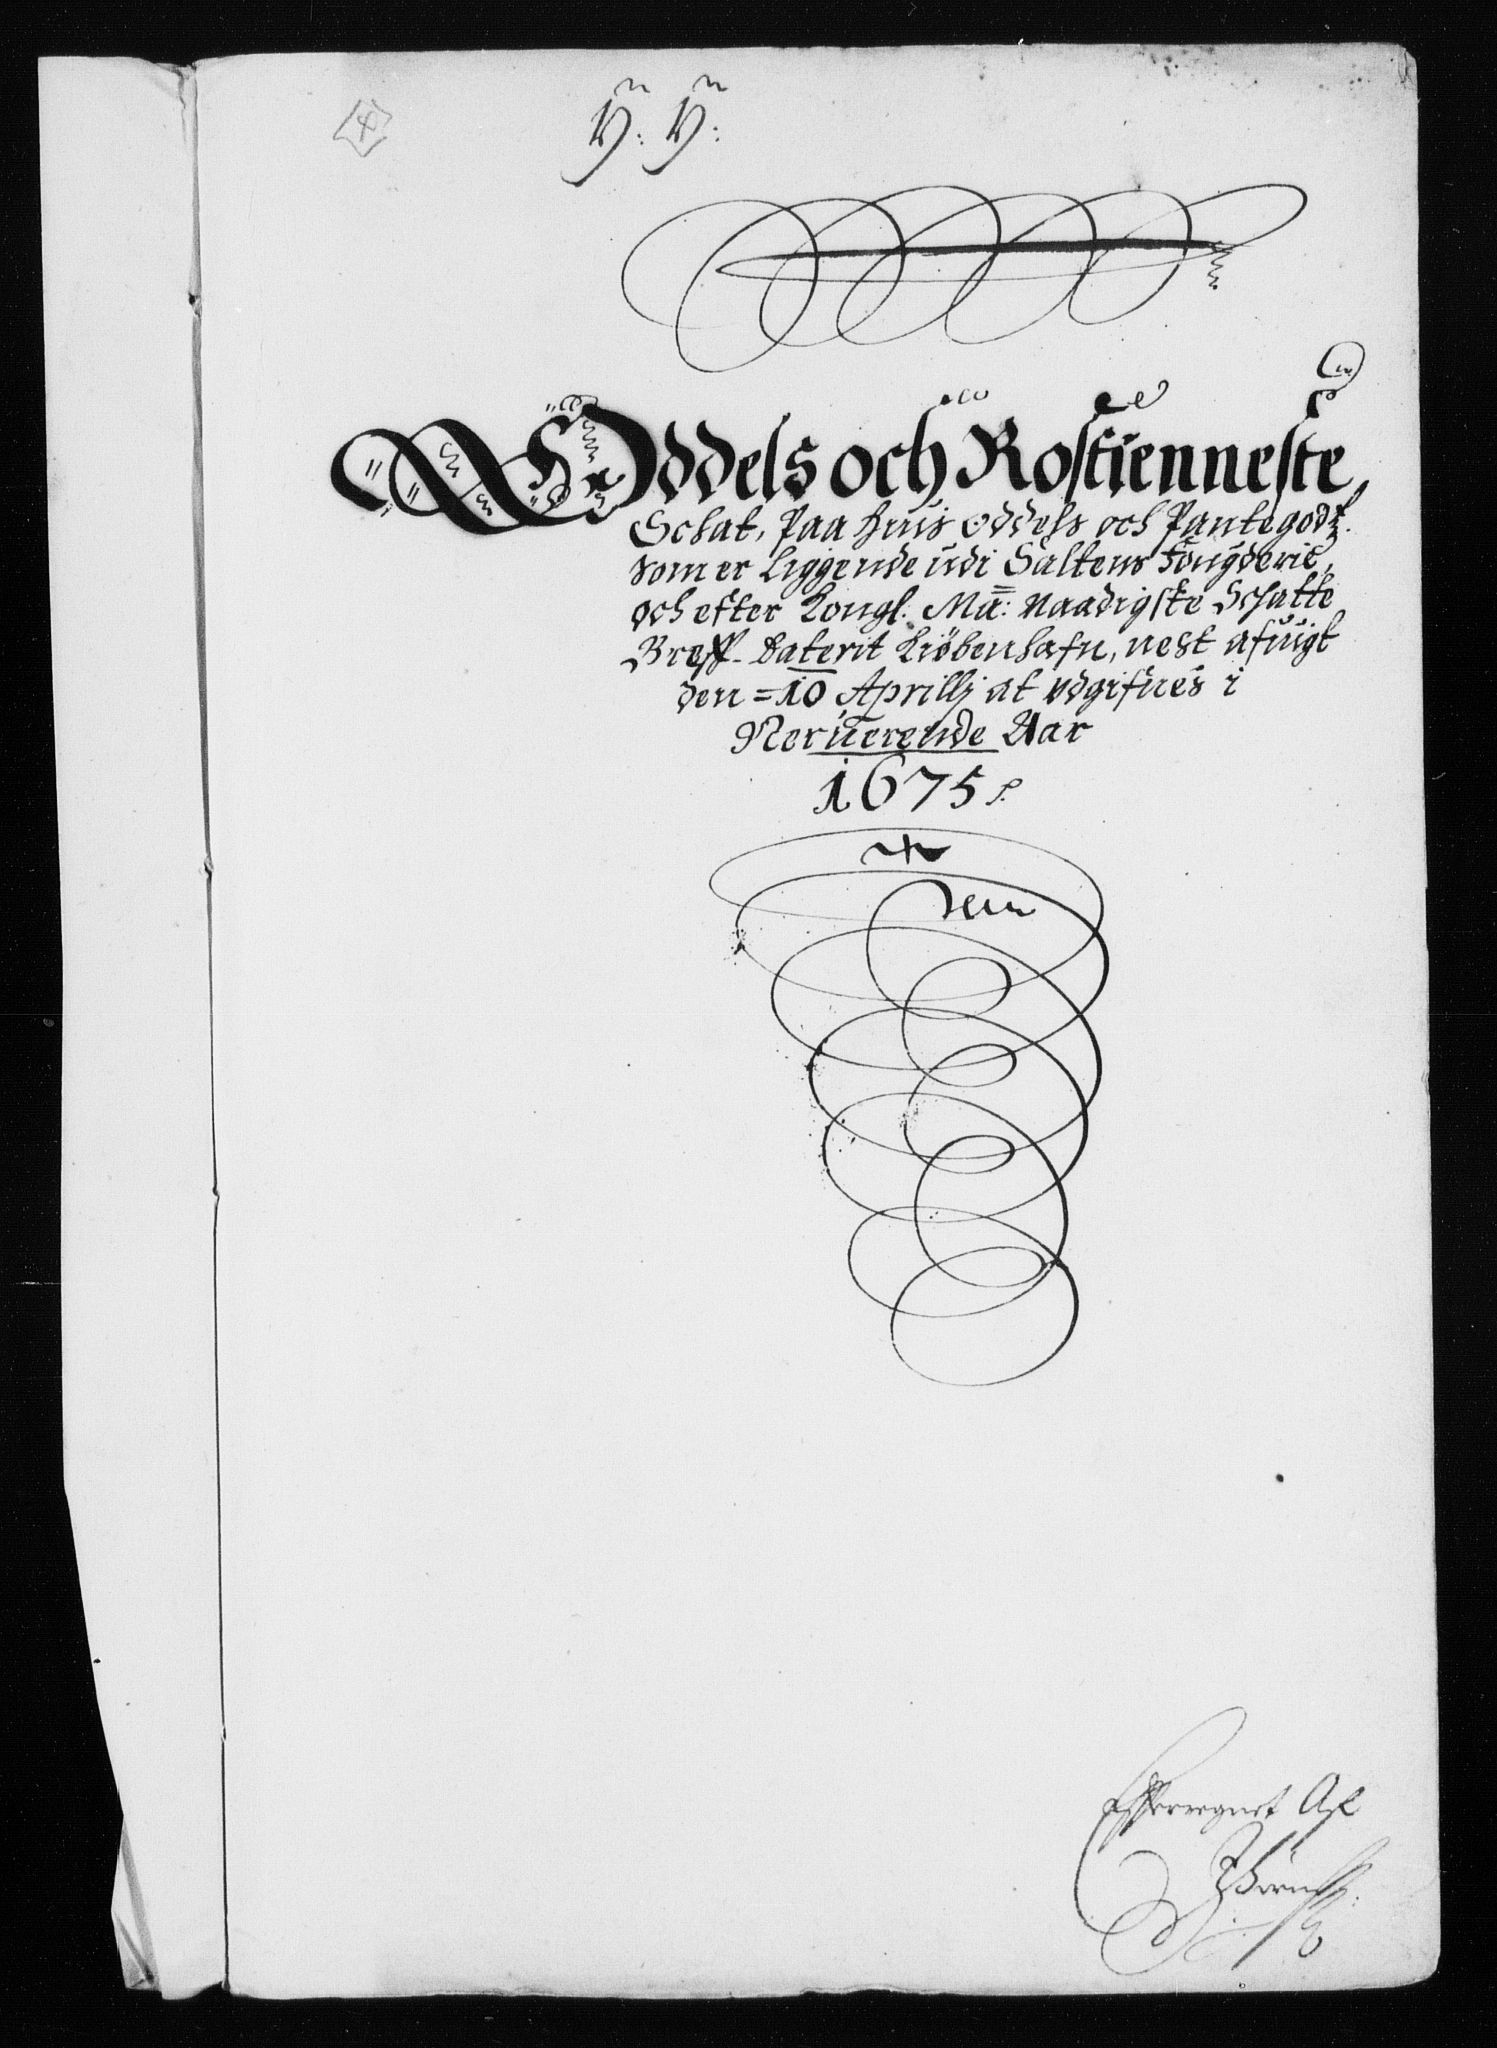 4
N: N:
Oddels och Rostienneste
Schat, Paa huis Oddels och Pantegodtz
som er Liggende udi Saltens Fougderie,
och efter Kongl: Ma: Naadigste Schatte
Breff Daterit Kiøbenhafn, nest afuigt
den = 10 Aprillj at udgifues i
Neruerende Aar
1675
Efterregnet Af